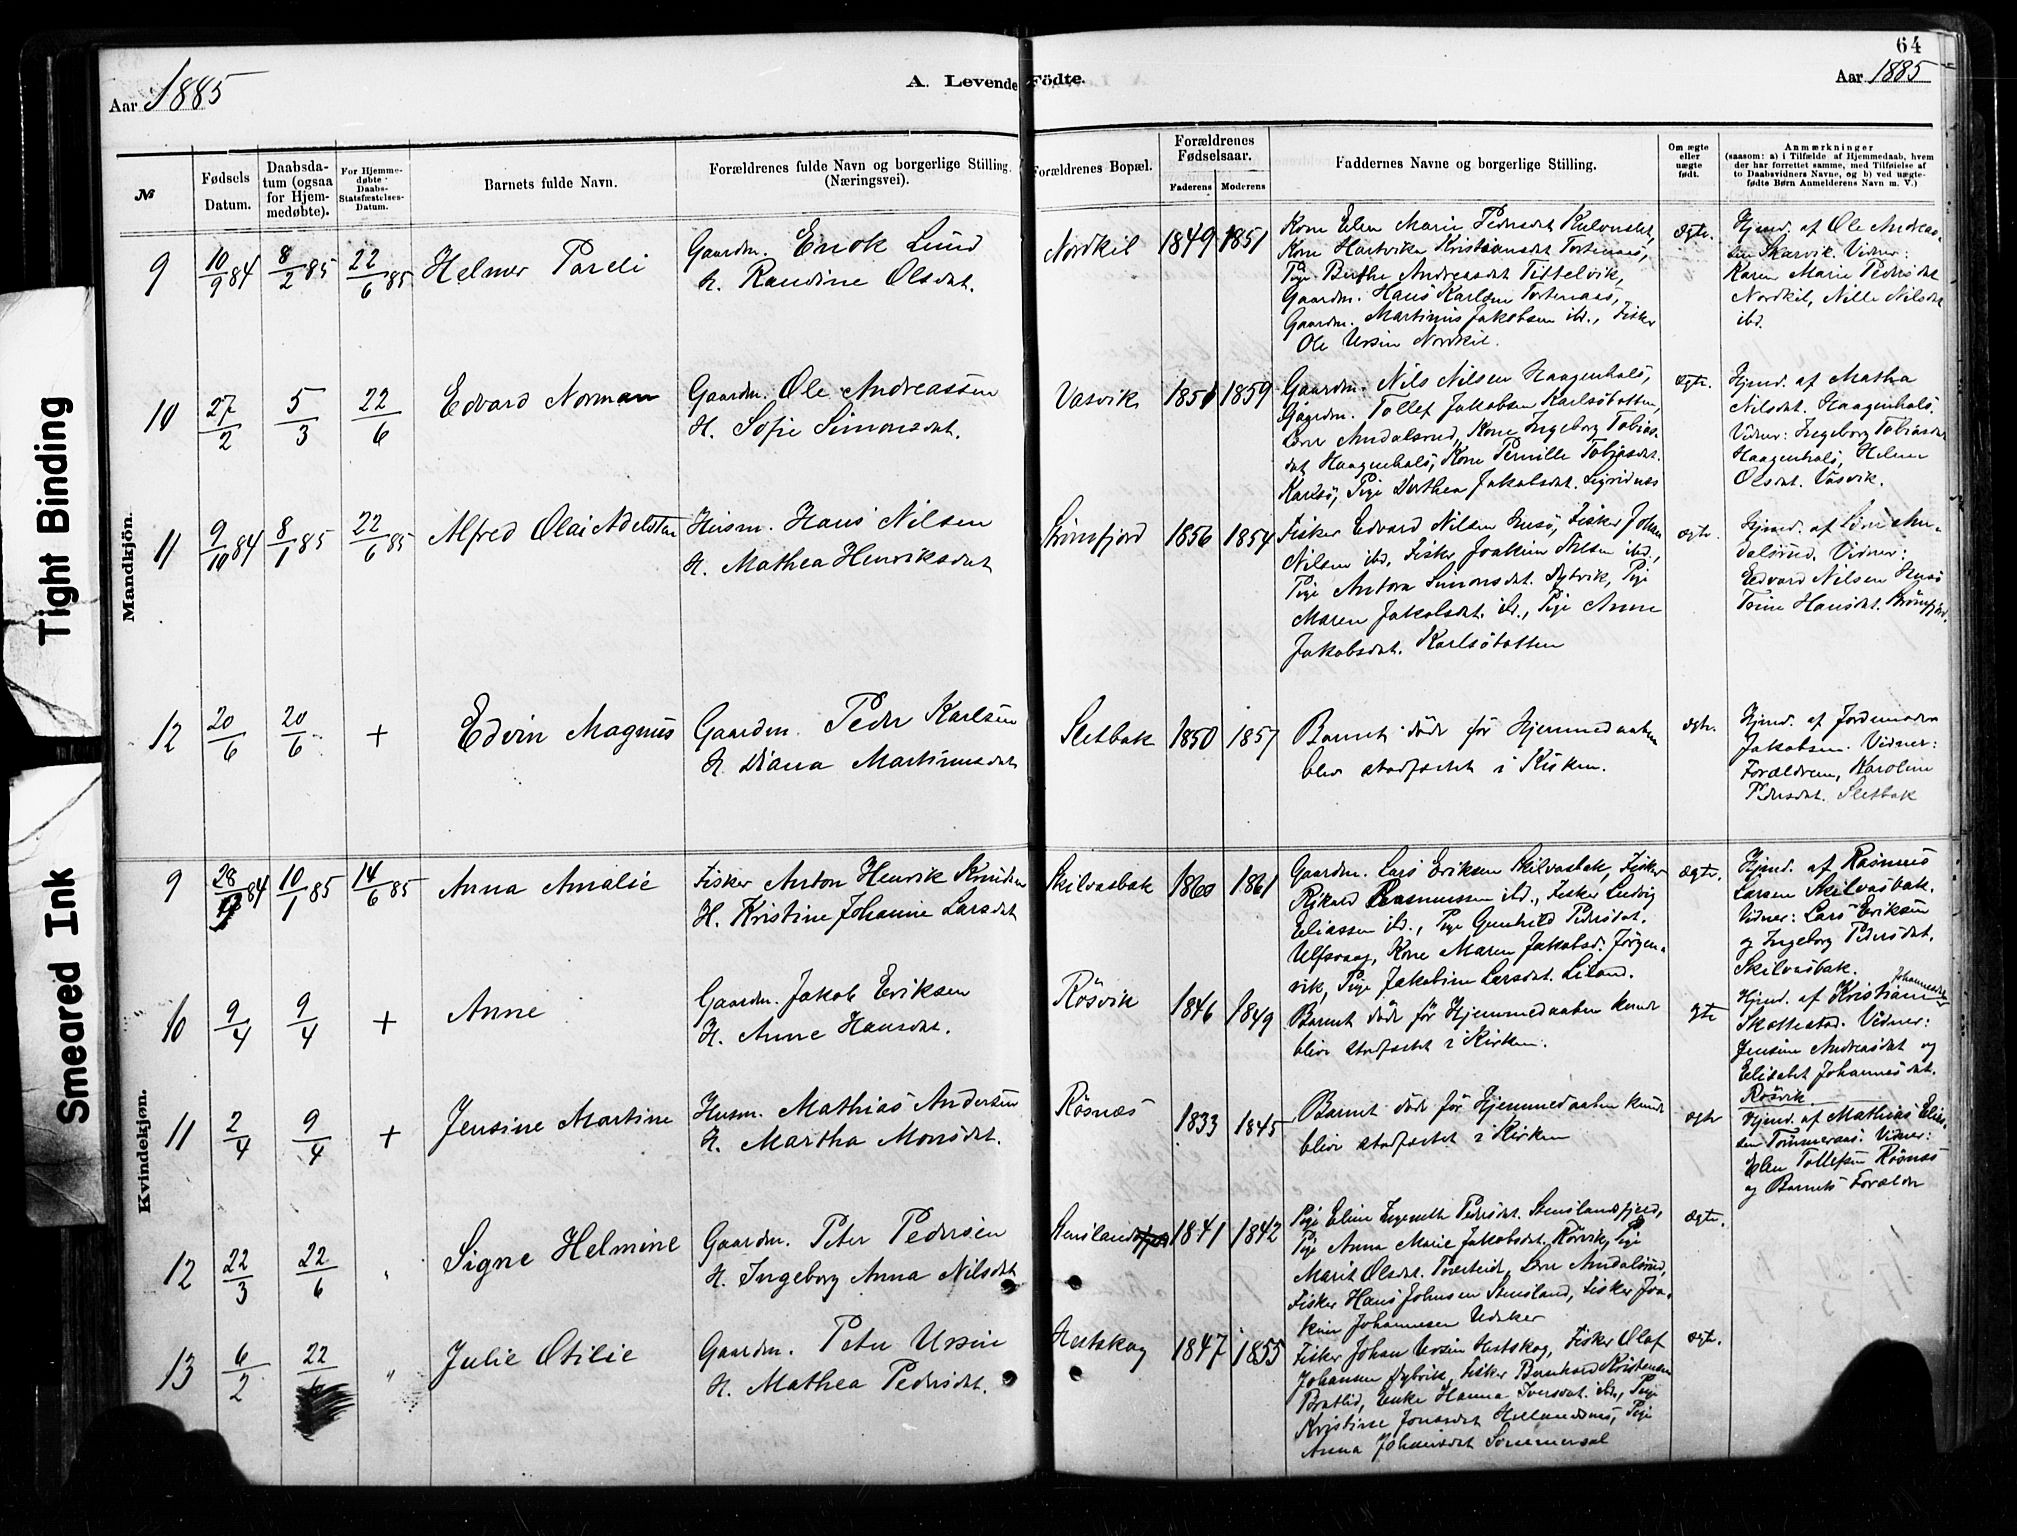 64
Aar 1885
A. Levende Födte.
Aar 1885
Tight Binding
Smeared Ink
Mandkjön.
Kvindekjøn.
№
Fødsels Datum.
Daabsdatum (ogsaa for Hjemmedøbte).
For Hjemmedøbte Daabs-Statsfæstelses-Datum.
Barnets fulde Navn.
Forældrenes fulde Navn og borgerlige Stilling. (Næringsvei).
Forældrenes Bopæl.
Forældrenes Fødselsaar.
Faderens
Moderens
Faddernes Navne og borgerlige Stilling.
Om ægte eller uægte født.
Anmærkninger
(saasom: a) i Tilfælde af Hjemmedaab, hvem der har forrettet samme, med Tilføielse af to Daabsvidners Navne, og b) ved uægtefødte Børn Anmelderens Navn m. V.)
9 10/9 84 8/2 85 22/6 85 Helmer Pareli
Gaardm. Enok Lund
H. Randine Olsdat.
Nordkil 1849 1851
Kone Elen Marie Pedersdat
Kone Hartvika Kristiansdat Tortenaas,
Pige Berthe Andreasdat Tittelvik,
Gaardm. Hans Karlsen Tortenaas,
Gaardm. Martinus Jakobsen ibd., Fisker
Ole Ursin Nordkil.
ægte.
Hjemd. af Ole Andreas-
sen Skarvik. Vidner:
Karen Marie Pedersdat
Nordkil, Nille Nilsdat
ibd.
10 27/2 5/3 22/6 Edvard Norman
Gaardm. Ole Andreassen
H. Sofie Simonsdat.
Vasvik 1851 1859
Gaardm. Nils Nilsen Haagenhals,
Gaardm. Tollef Jakobsen Karlsøbotten,
Lærer Andalsrud, Kone Ingeborg Tobias-
dat Haagenhals, Kone Pernille Tobiasdat.
Karlsø, Pige Dorthea Jakobsdat. Sigridnæs
ægte.
Hjemd. af Matha
Nilsdat. Haagenhals.
Vidner: Ingeborg Tobiasdat
Haagenhals, Helmer
Olsdat. Vasvik.
11 9/10 84 8/1 85 22/6 85 Alfred Olai Adelstan
Husm. Hans Nilsen
H. Mathea Henriksdat
1856 1854
Fisker Edvard Nilsen Husø, Fisker Johan
Nilsen ibd, Fisker Joakim Nilsen ibd,
Pige Antora Simonsdat. Dybvik, Pige
Maren Jakobsdat. ibd., Pige Anne
Jakobsdat. Karlsøbotten
ægte.
Hjemd. af Lærer An-
dalsrud. Vidner:
Edvard Nilsen Husø
Trine Hansdat.
12 20/6 20/6 + Edvin Magnus
Gaardm. Peder Karlsen
H. Diana Martinusdat
Sletbak 1850 1857
Barnet døde før Hjemmedaaben
blev stadfæstet i Kirken.
ægte.
Hjemd. af Jordemoder
Jakobsen. Vidner:
Forældrene, Karoline
Pedersdat. Sletbak
9 28/12 84 10/1 85 14/6 85 Anna Amalie
Fisker Anton Henrik Knudsen
H. Kristine Johanne Larsdat
Skilvasbak 1860 1861
Gaardm. Lars Eriksen Skilvasbak, Fisker
Rikard Rasmussen ibd., Fisker Ludvig
Eliassen ibd., Pige Gunhild Pedersdat.
Ulfsvaag, Kone Maren Jakobsd. Jørgen-
vik, Pige Jakobine Larsdat. Leland.
ægte.
Hjemd. af Rasmus
Larsen Skilvasbak.
Vidner: Lars Eriksen
og Ingeborg Pedersdat.
Skilvasbak.
10 9/4 9/4 + Anne
Gaardm. Jakob Eriksen
H. Anne Hansdat.
Røsvik 1846 1849
Barnet døde før Hjemmedaaben kunde
blive stadfæstet i Kirken.
ægte
Hjemd. af Kristian
Skottestad. Vidner:
Jensine Andreasdat og
Elisabet Johannesdat.
Røsvik.
11 2/4 9/4 + Jensine Martine
Husm. Mathias Andersen
H. Martha Monsdat.
Røsnæs 1833 1845
Barnet døde før Hjemmedaaben kunde
blive stadfæstet i Kirken
ægte
Hjemd. af Mathias Elias-
sen Tømmeraas. Vidner:
Elen Tollefsen Røsnæs
og Barnets Forældre
12 22/3 22/6 " Signe Helmine
Gaardm. Peter Pedersen
H. Ingeborg Anna Nilsdat
Stensland 1841 1842
Pige Eline Pedersdat. Stenslandsfjord,
Pige Anna Marie Jakobsdat. Rørvik, Pige
Marit Olsdat. Tverteid, Lærer Andalsrud,
Fisker Hans Johnsen Stensland, Fisker Joa-
kim Johannesen
ægte.
13 6/2 22/ " Julie Otilie
Gaardm. Peter Ursin
H. Mathea Pedersdat.
Hestskog 1847 1855
Fisker Johan Ursin Hestskog, Fisker Olaf
Johansen Dybvik, Fisker Bernhard Kristensen
Bratlid, Enke Hanna Iversdat. ibd., Pige
Kristine Jonasdat Hellandsnes, Pige
Anna Johansdat Sommersel
ægte.